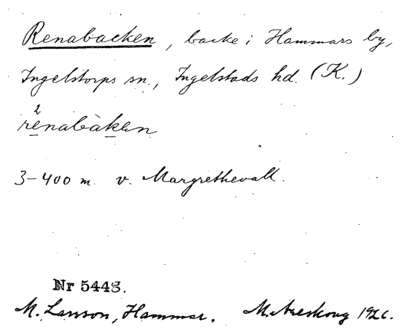 Renabacken, backe i Hammars by,
Ingelstorps sn., Ingelstads hd. (K.)
2
rènabàken
3–400 m. v. Margrethevall.
Nr 5448.
M. Larsson, Hammar. M. Areskoug 1926.